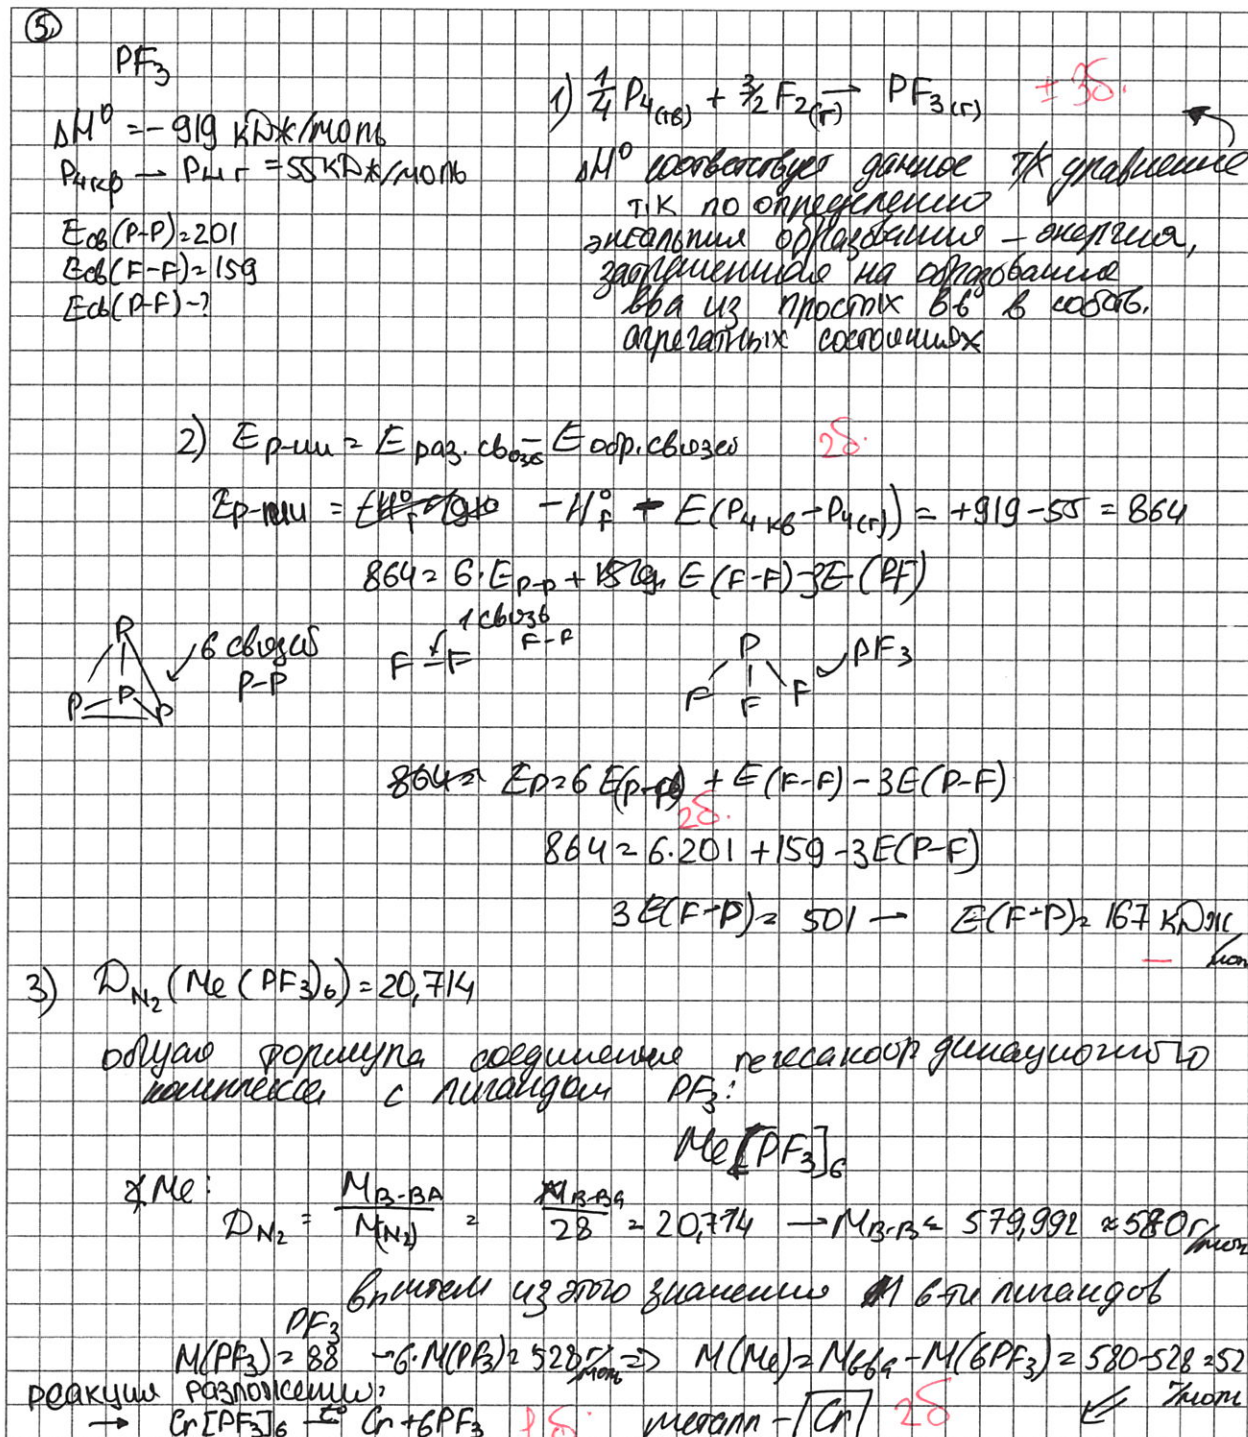 5
PF3
ΔH⁰ = -919 кДж/моль
P4кр → P4г = 55 кДж/моль
Eсв(P-P)=201
Eсв(F-F)=159
Eсв(P-F)-?
1) 1/4 P4(тв) + 3/2 F2(г) → PF3(г)
± 3б.
ΔH⁰ соответствует данное т/х уравнение
т.к по определению
энтальпия образования – энергия,
затраченная на образование
вва из простых вв в собств.
агрегатных состояниях
2) Eр-ции = Eраз. связ – Eобр. связей
2б.
Eр-ции = -H⁰f - E(P4кв→P4(г)) = +919-55 = 864
864 = 6·EP-P + E(F-F) -3E(PF)
P
P P P
6 связей
P-P
F-F
1 связь
F-F
P
F F F
PF3
864= Ep=6 E(P-P) + E(F-F) - 3E(P-F)
2б.
864 = 6·201 +159 -3E(P-F)
3 E(F-P) = 501 → E(F-P)= 167 кДж/мол
3) DN2(Me(PF3)6) = 20,714
общая формула соединения гексакоординационного
комплекса с лигандом PF3:
Me[PF3]6
Me:
DN2 = MВ-ВА/M(N2) = MВ-ВА/28 = 20,714 → MВ-В= 579,992 ≈ 580 г/мол
вычтем из этого значения M 6-ти лигандов
PF3
M(PF3) = 88 → 6·M(PF3)= 528 г/моль => M(Me)= Mвва - M(6PF3) = 580-528 = 52 г/мол
реакция разложения:
→ Cr[PF3]6 t⁰ Cr + 6PF3
1б.
металл – Cr
2б